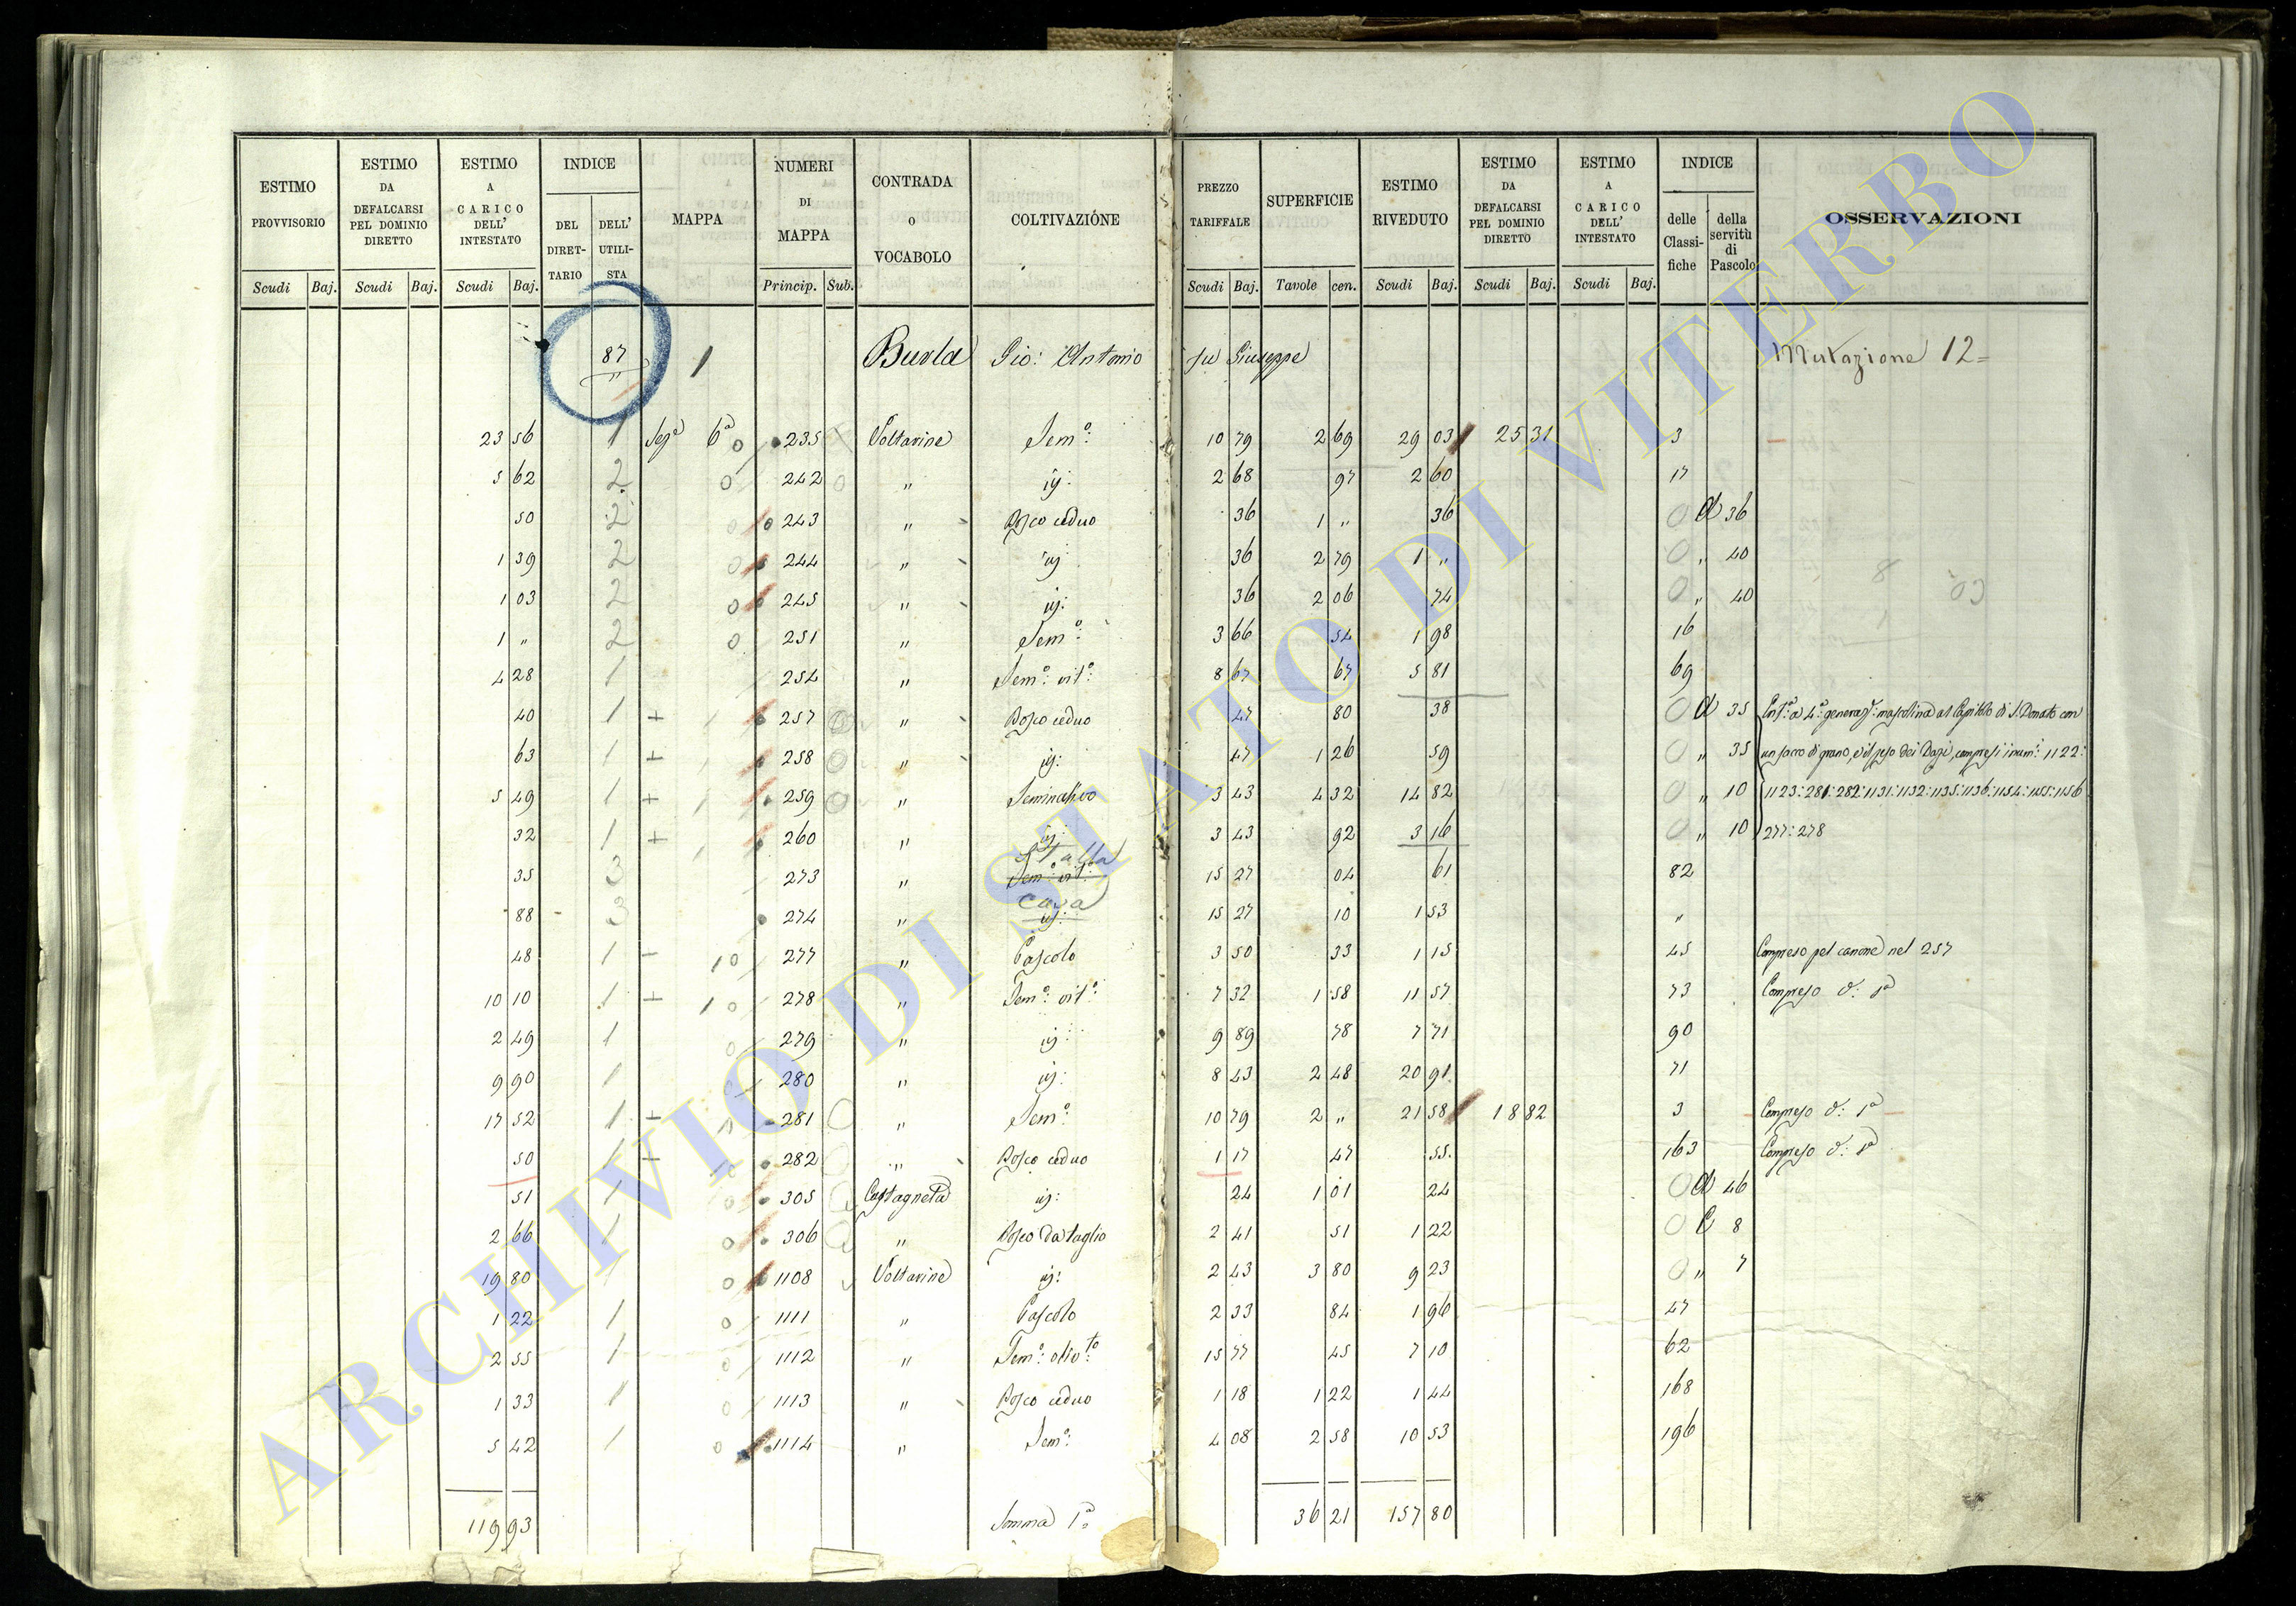 ESTIMO PROVVISORIO | ESTIMO DA DEFALCARSI PEL DOMINIO DIRETTO | ESTIMO A CARICO DELL' INTESTATO | INDICE | MAPPA | NUMERI DI MAPPA | CONTRADA O VOCABOLO | COLTIVAZIONE | PREZZO TARIFFALE | SUPERFICIE | ESTIMO RIVEDUTO | ESTIMO DA DEFALCARSI PEL DOMINIO DIRETTO | ESTIMO A CARICO DELL' INTESTATO | INDICE | OSSERVAZIONI
DEL DIRETTARIO | DELL' UTILISTA | delle Classifiche | della servitù di Pascolo
Scudi | Baj. | Scudi | Baj. | Scudi | Baj. | Princip. | Sub. | Scudi | Baj. | Tavole | cen. | Scudi | Baj. | Scudi | Baj. | Scudi | Baj.
87 | 1 | Burla Gio: Antonio fu Giuseppe | Mutazione 12=
23 56 | 1 | Sez.a 6a 0 | 235 | Poltarine | Sem.o: | 10 79 | 2 69 | 29 03 | 25 31 | 3
5 62 | 2 | 0 | 242 | " | ij: | 2 68 | 97 | 2 60 | 17
50 | 2 | 0 | 243 | " | Bosco ceduo | 36 | 1 " | 36 | 0 | A 36
1 39 | 2 | 0 | 244 | " | ij: | 36 | 2 79 | 1 " | 0 | " 40
1 03 | 2 | 0 | 245 | " | ij: | 36 | 2 06 | 74 | 0 | " 40
1 " | 2 | 0 | 251 | " | Sem.o: | 3 66 | 54 | 1 98 | 16
4 28 | 1 | 254 | " | Sem.o: vit.o: | 8 67 | 67 | 5 81 | 69
40 | 1 | + | 257 | " | Bosco ceduo | 47 | 80 | 38 | 0 | A 35 | Enf.o a 4.a generaz.e: mascolina al Capitolo di S. Donato con
63 | 1 | + | 258 | " | ij: | 47 | 1 26 | 59 | 0 | " 35 | un sacco di grano, ed il peso dei Dazi, compresi i num.i: 1122:
5 49 | 1 | + | 259 | " | Seminativo | 3 43 | 4 32 | 14 82 | 0 | " 10 | 1123: 281: 282: 1131: 1132: 1135: 1136: 1154: 1155: 1156
32 | 1 | + | 260 | " | ij: | 3 43 | 92 | 3 16 | 0 | " 10 | 277: 278
Stalla
35 | 3 | 273 | " | Sem.o: vit.o: | 15 27 | 04 | 61 | 82
casa
88 | 3 | 274 | " | ij: | 15 27 | 10 | 1 53 | "
48 | 1 | + | 10 | 277 | " | Pascolo | 3 50 | 33 | 1 15 | 45 | Compreso pel canone nel 257
10 10 | 1 | + | 10 | 278 | " | Sem.o: vit.o: | 7 32 | 1 58 | 11 57 | 73 | Compreso d: pa
2 49 | 1 | 0 | 279 | " | ij: | 9 89 | 78 | 7 71 | 90
9 90 | 1 | 0 | 280 | " | ij: | 8 43 | 2 48 | 20 91 | 71
17 52 | 1 | + | 281 | " | Sem.o: | 10 79 | 2 " | 21 58 | 18 82 | 3 | Compreso d: pa
50 | 1 | + | 10 | 282 | " | Bosco ceduo | 1 17 | 47 | 55 | 163 | Compreso d: pa
51 | 1 | 0 | 305 | Castagneta | ij: | 24 | 1 01 | 24 | 0 | A 46
2 66 | 1 | 0 | 306 | " | Bosco da taglio | 2 41 | 51 | 1 22 | 0 | C 8
19 80 | 1 | 0 | 1108 | Poltarine | ij: | 2 43 | 3 80 | 9 23 | 0 | " 7
1 22 | 1 | 0 | 1111 | " | Pascolo | 2 33 | 84 | 1 96 | 47
2 55 | 1 | 0 | 1112 | " | Sem.o: oliv.to: | 15 77 | 45 | 7 10 | 62
1 33 | 1 | 0 | 1113 | " | Bosco ceduo | 1 18 | 1 22 | 1 44 | 168
5 42 | 1 | 0 | 1114 | " | Sem.o: | 4 08 | 2 58 | 10 53 | 196
119 93 | Somma 1a= | 36 21 | 157 80
ARCHIVIO DI STATO DI VITERBO